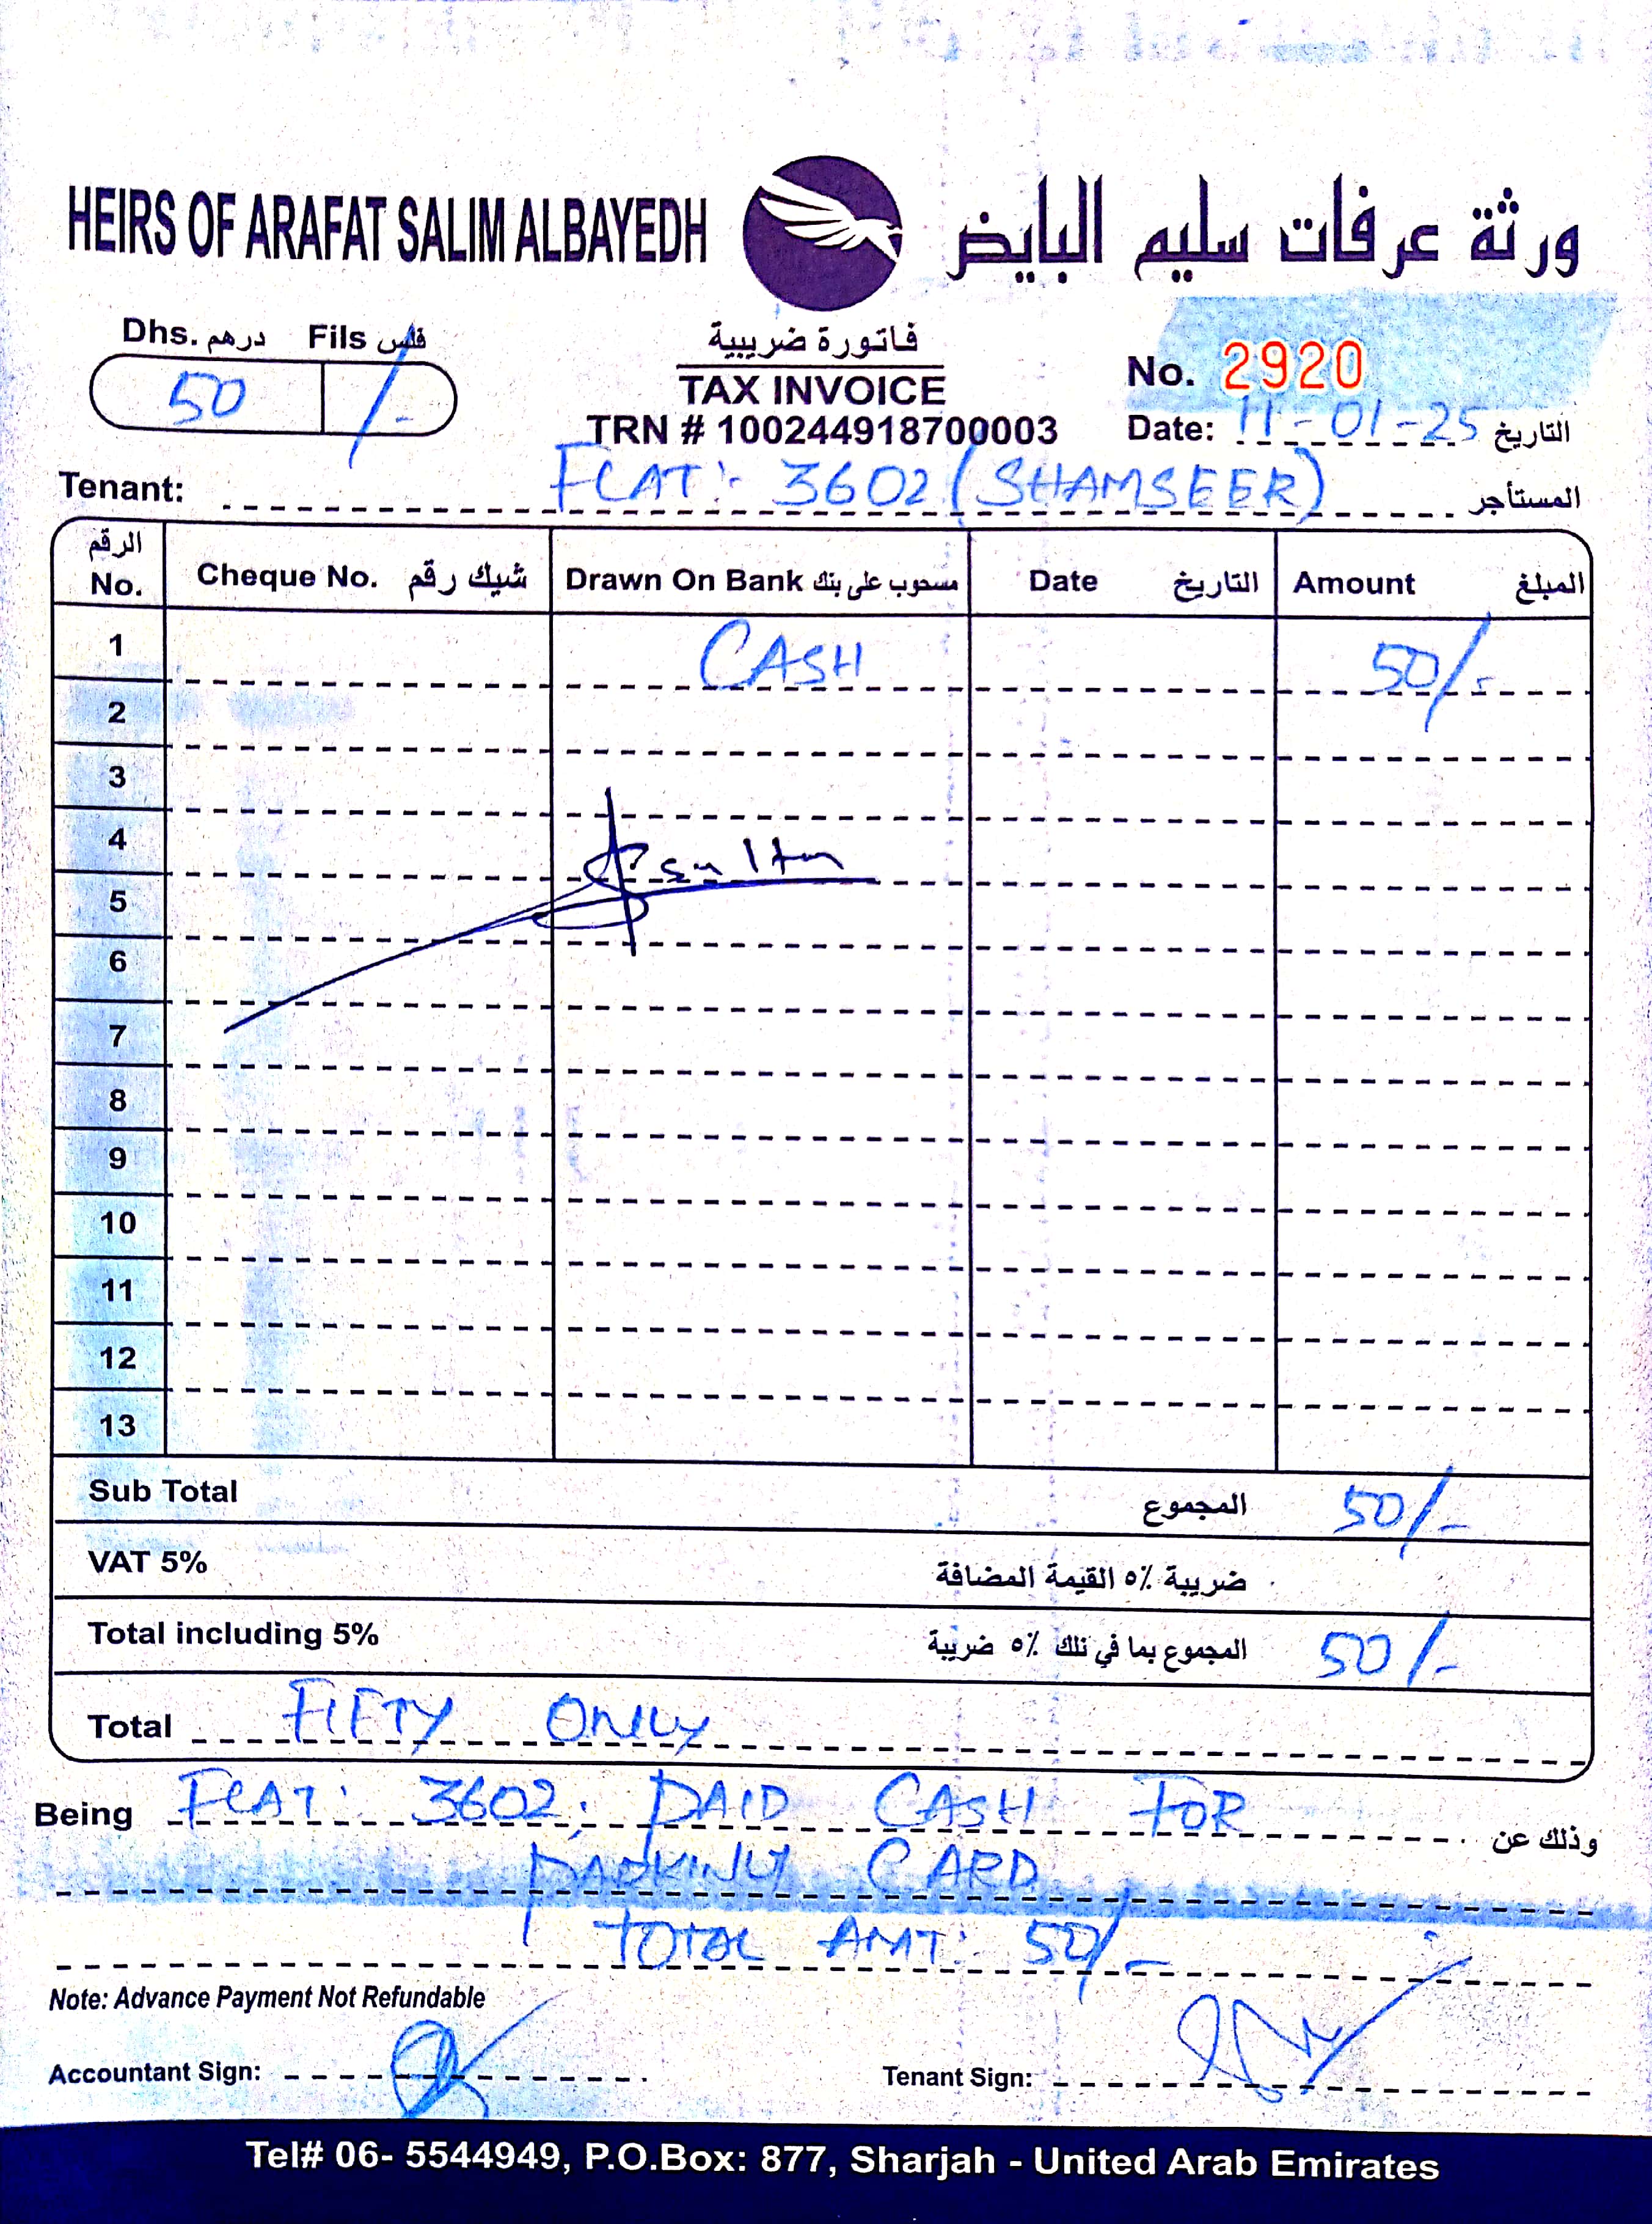 HEIRS OF ARAFAT SALIM ALBAYEDH ورثة عرفات سليم البايض
Dhs. درهم Fils فلس
50 /-
فاتورة ضريبية
TAX INVOICE
TRN # 100244918700003
No. 2920
Date: 11-01-25 التاريخ
Tenant: FLAT: 3602 (SHAMSEER) المستأجر
الرقم
No. Cheque No. شيك رقم Drawn On Bank مسحوب على بنك Date التاريخ Amount المبلغ
1 CASH 50/-
2
3
4
5
6
7
8
9
10
11
12
13
Sub Total المجموع 50/-
VAT 5% ضريبة ٥٪ القيمة المضافة
Total including 5% المجموع بما في تلك ٥٪ ضريبة 50/-
Total FIFTY ONLY
Being FLAT: 3602; PAID CASH FOR وذلك عن
PARKING CARD
TOTAL AMT: 50/-
Note: Advance Payment Not Refundable
Accountant Sign: Tenant Sign:
Tel# 06- 5544949, P.O.Box: 877, Sharjah - United Arab Emirates